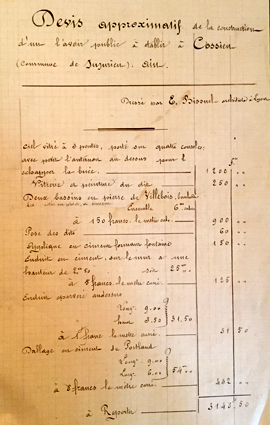 Devis approximatif de la construction
d'un lavoir public à établir à Cossieu
(Commune de Jujurieu) Ain.
Dressé par E. Bissuel architecte à Lyon
Ciel vitré à 2 pentes, porté sur quatre consoles
avec partie l'antérieure au dessus pour l'
échapper la buée. 1200 "
Vitrerie et peinture du dit 250 "
Deux bassins en pierre de Villebois,
Ensemble 6 m. cubes
à 150 francs le mètre cube 900 "
Pose des dits 60 "
en ciment 150 "
Enduit en ciment, sur le mur à une
hauteur de 2.50 soit 25.00
à 5 francs le mètre carré 125 "
Enduit ordinaire au dessus
Long. 9.00
haut 3.50 31.50
à 1 franc le mètre carré. 31 50
Dallage en ciment de Portland
Long. 9.00
Larg. 6.00 54.00
à 8 francs le mètre carré 432 "
à Reporter 3148 50